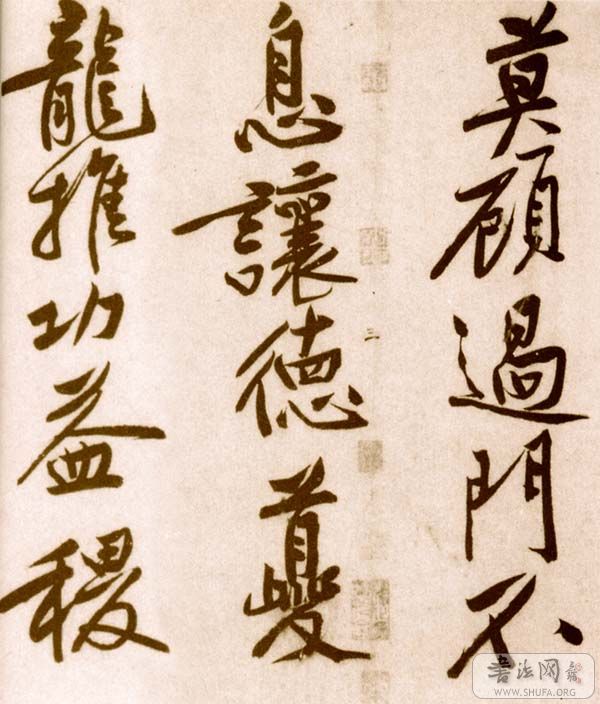 莫顧過門不
息讓德夔
龍推功益稷
三
书法网
WWW.SHUFA.ORG